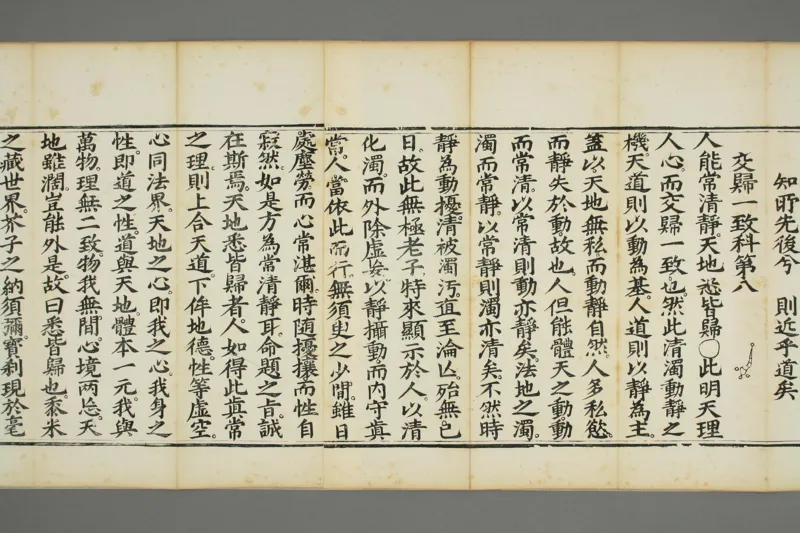 知所先後兮　則近乎道矣
交歸一致科第八
人能常清靜。天地悉皆歸〇此明天理
人心。而交歸一致也。然此清濁動靜之
機。天道則以動為基。人道則以靜為主。
蓋以天地無私。而動靜自然。人多私慾。
而靜失於動故也。人但能體天之動。動
而常清。以常清則動亦靜矣。法地之濁。
濁而常靜。以常靜則濁亦清矣。不然時
靜為動擾。清被濁汚。直至淪亾。殆無已
日。故此無極老子。特來顯示於人。以清
化濁。而外除虛妄。以靜攝動。而內守眞
常。人當依此而行。無須臾之少閒。雖日
處塵勞。而心常湛爾。時随擾攘。而性自
寂然。如是方為常清靜耳。命題之旨。誠
在斯焉。天地悉皆歸者。人如得此眞常
之理。則上合天道。下侔地德。性等虛空。
心同法界。天地之心。即我之心。我身之
性。即道之性。道與天地。體本一元。我與
萬物。理無二致。物我無間。心境两忘。天
地雖濶。豈能外是。故曰悉皆歸也。黍米
之藏世界。芥子之納須彌。寶剎現於毫